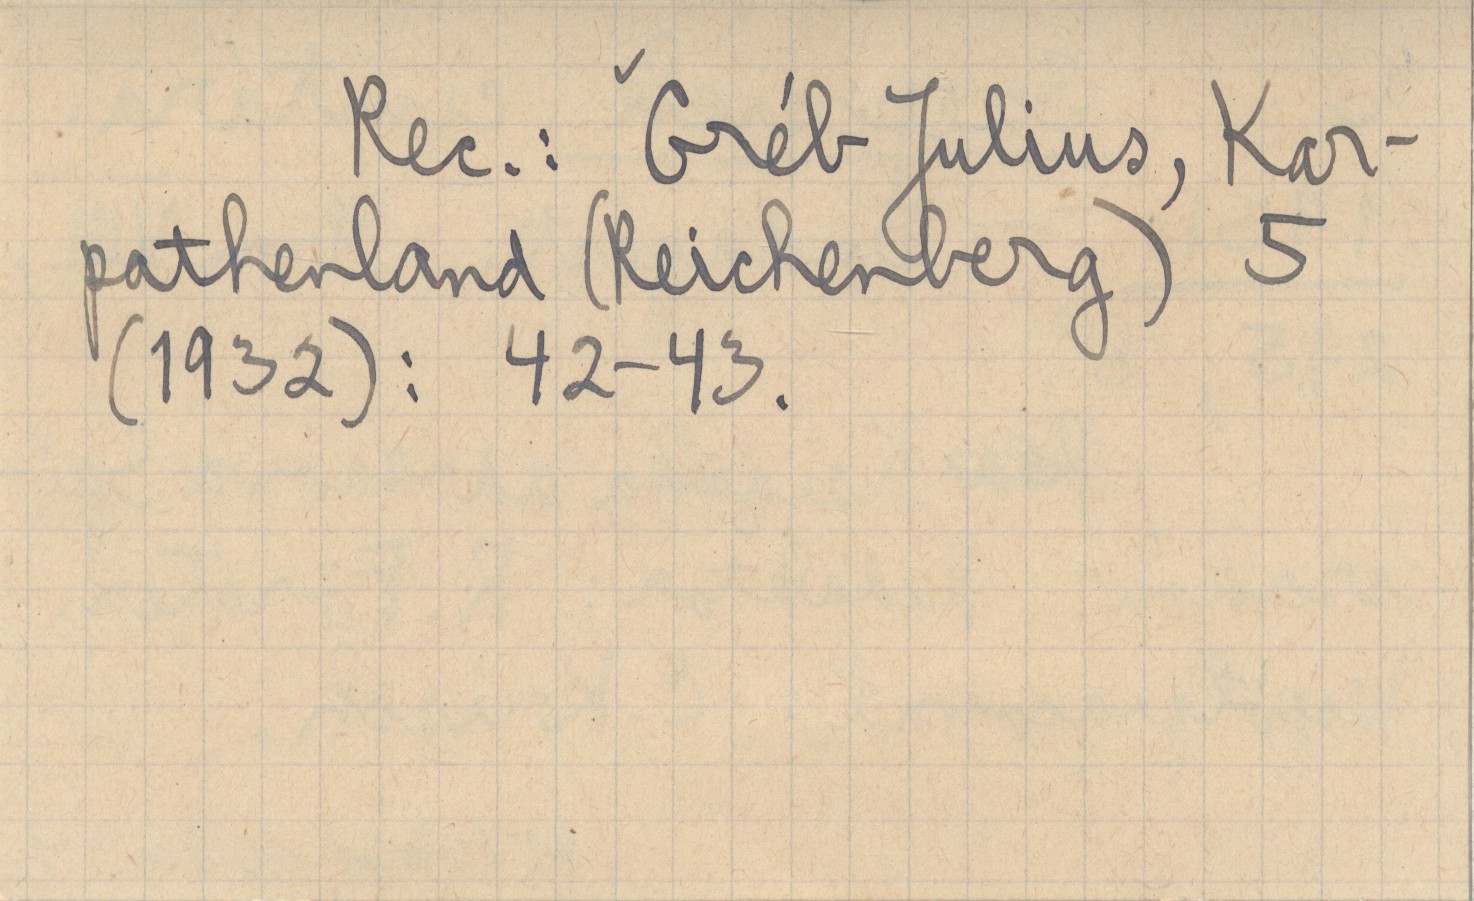 Rec.: Gréb Julius, Kar-
pathenland (Reichenberg) 5
(1932): 42-43.